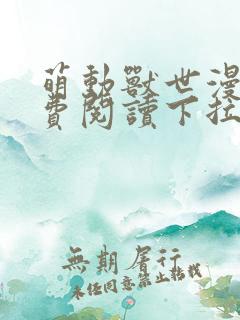 萌動獸世漫
費閱讀下拉
無期屠行
未任同意禁止轉載